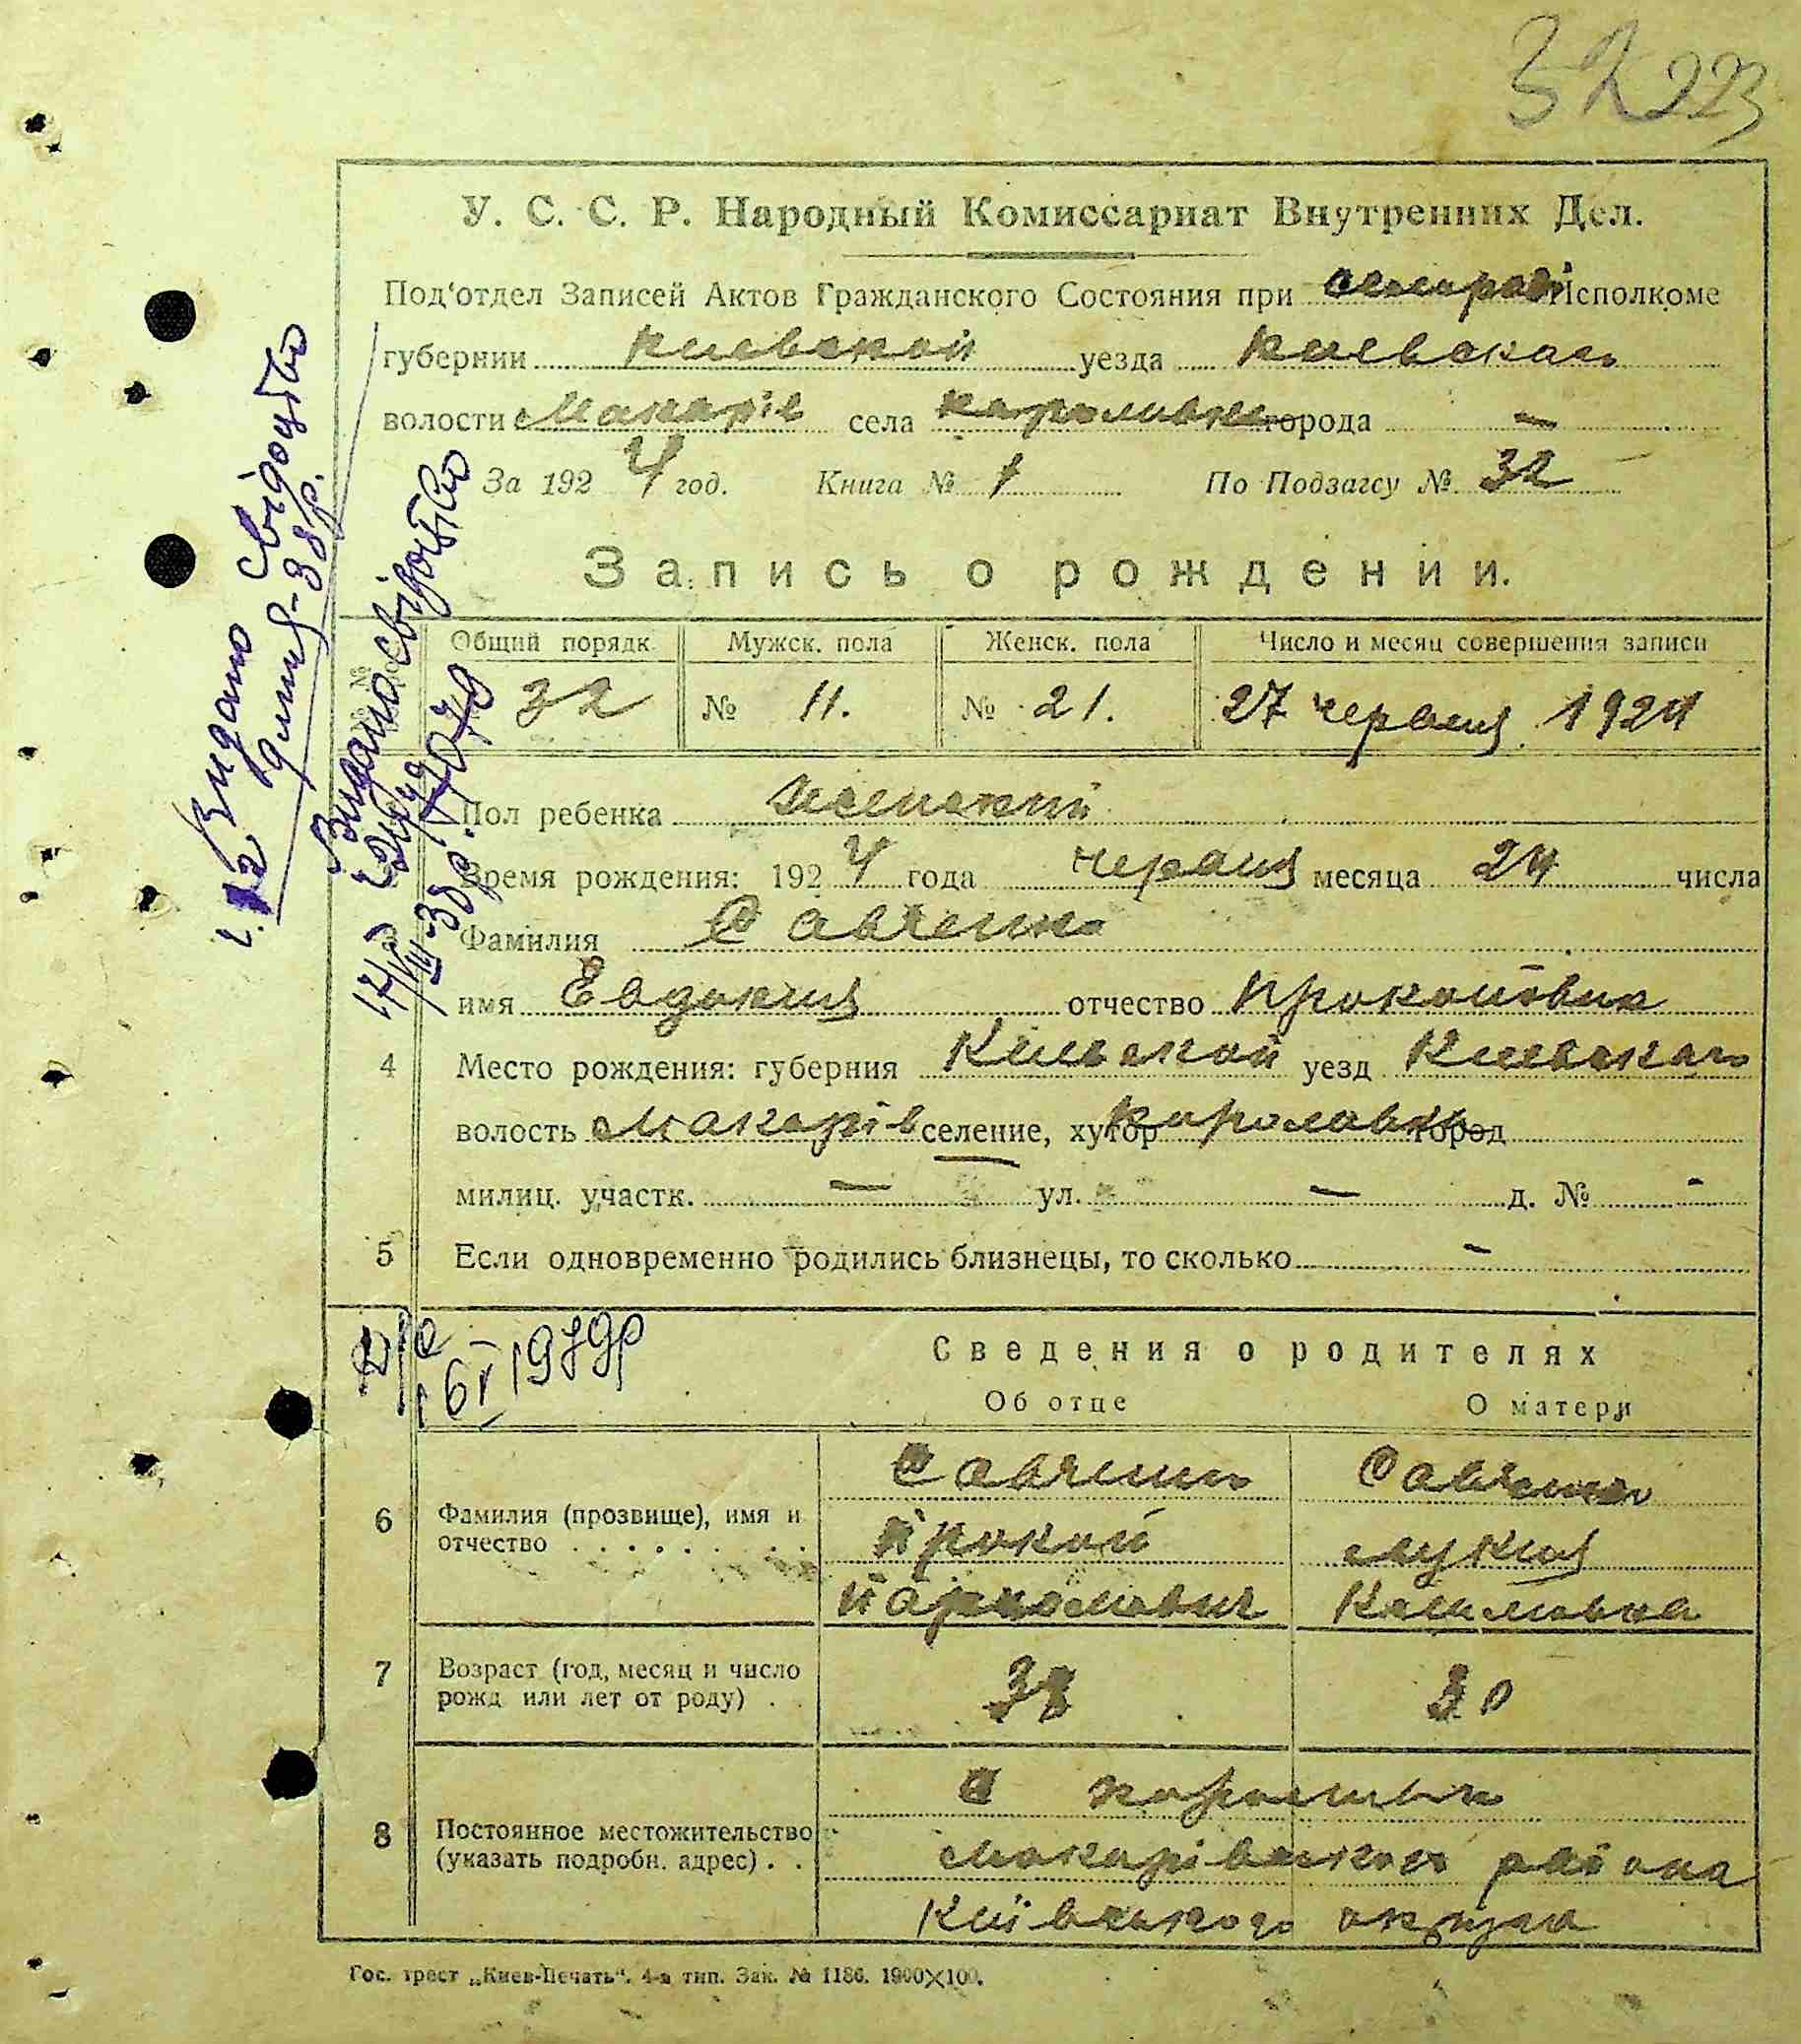 32 223
У. С. С. Р. Народный Комиссариат Внутренних Дел.
Под'отдел Записей Актов Гражданского Состояния при Исполкоме
губернии Киевской уезда Киевского
волости Макарів села Короливка города —
За 1924 год. Книга № 1 По Подзагсу № 32
Запись о рождении.
Общий порядк. Мужск. пола Женск. пола Число и месяц совершения записи
32 № 11. № 21. 27 червня 1924
Пол ребенка женский
Время рождения: 1924 года червня месяца 24 числа
Фамилия Савченко
имя Евдокия отчество Прокоповна
4 Место рождения: губерния Киевской уезд Киевского
волость Макарів селение, хутор Королавка город
милиц. участк. — ул. — д. № -
5 Если одновременно родились близнецы, то сколько -
16 V 1979р
Сведения о родителях
Об отце О матери
6 Фамилия (прозвище), имя и отчество
Савченко Савченко
Прокоп Лукия
7 Возраст (год, месяц и число рожд или лет от роду)
38 30
8 Постоянное местожительство (указать подробн. адрес)
С Короливка
Макарівского района
Київського округа
Гос. трест „Киев-Печать“. 4-я тип. Зак. № 1186. 1900×100.
Видано свідоцтво
Видано свідоцтво